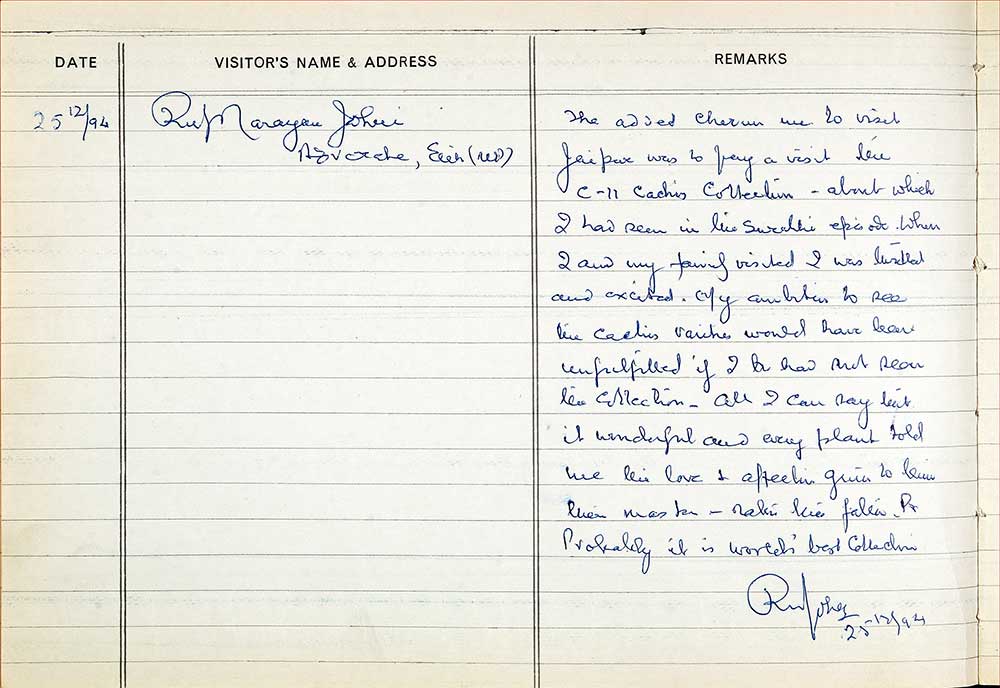 DATE
VISITOR'S NAME & ADDRESS
REMARKS
25 12/94
Narayan Johri
Advocate,
The added me to visit
Jaipur was to pay a visit the
C-11 Cactus Collection - about which
I had seen in the Surabhi episode. When
I and my family visited I was thrilled
and excited. My ambition to see
the cactus would have been
unfulfilled if I had not seen
the collection - All I can say that
it wonderful and every plant told
me the love & affection given to them
their master - rather their father.
Probably it is world's best Collection
25 12/94